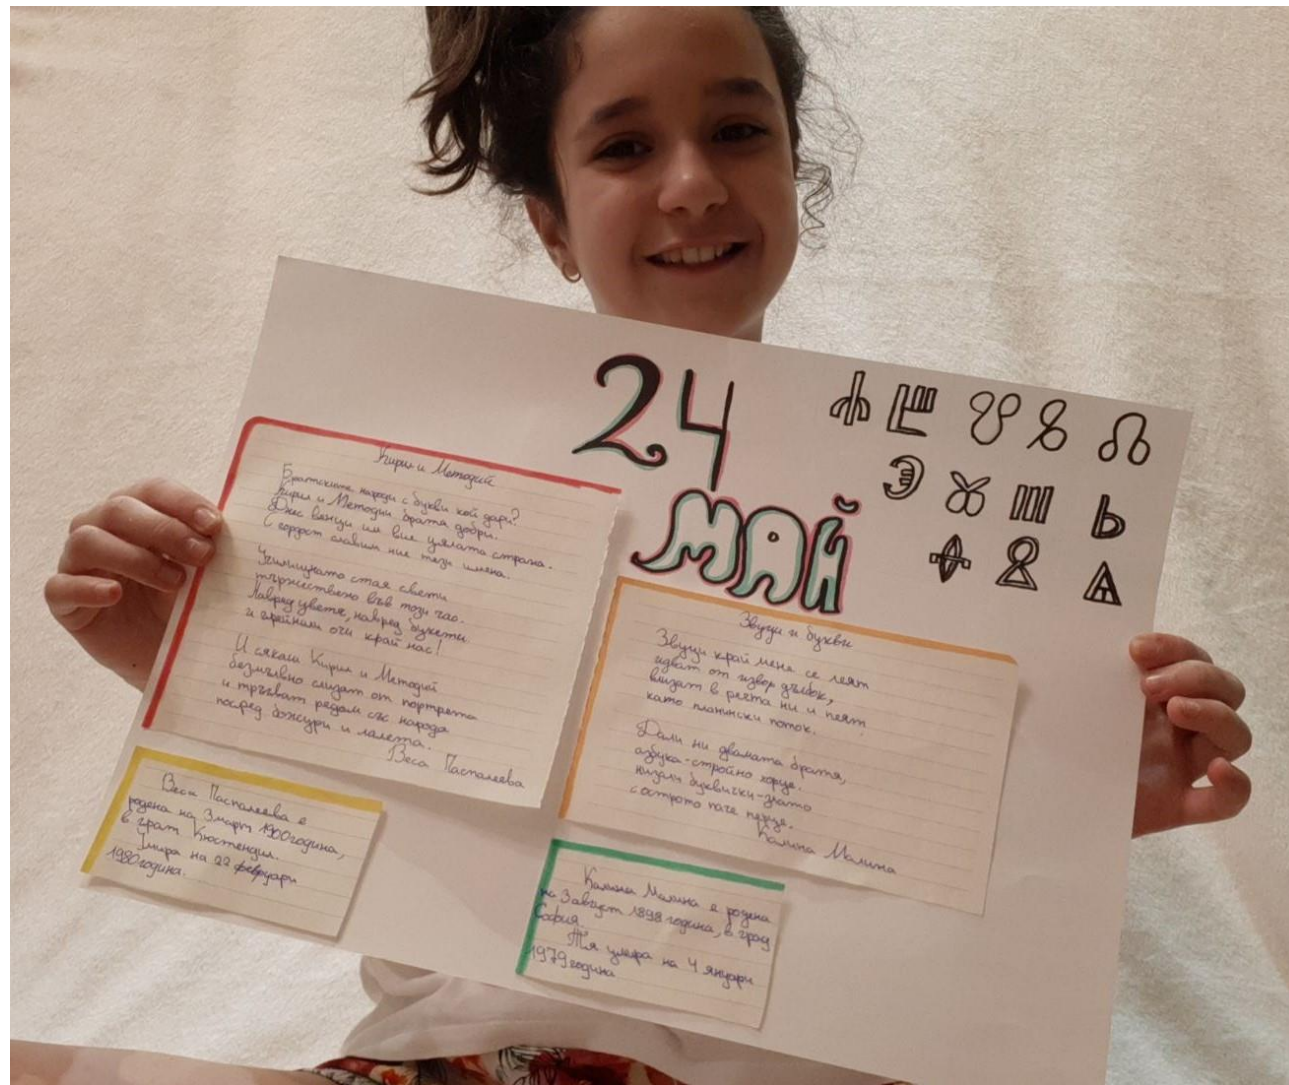 24
МАЙ
Кирил и Методий
Братските народи с букви кой дари?
Кирил и Методии братя добри.
Днес венци им вие цялата страна.
С гордост славим ние тези имена.
Училищната стая свети
тържествено във този час.
Навред цветя, навред букети
и грейнали очи край нас!
И сякаш Кирил и Методий
безмълвно слизат от портрета
и тръгват редом със народа
посред божури и лалета.
Веса Паспалеева
Веса Паспалеева е
родена на 3март 1900година,
в град Кюстендил.
Умира на 22 февруари
1980година.
Звуци и букви
Звуци край мене се леят
идват от извор дълбок,
влизат в речта ни и пеят
като планински поток.
Дали ни двамата братя,
азбука-стройно хорце.
низали буквички-злато
с острото паче перце.
Калина Малина
Калина Малина е родена
на 3август 1898 година, в град
София.
Тя умира на 4 януари
1979година